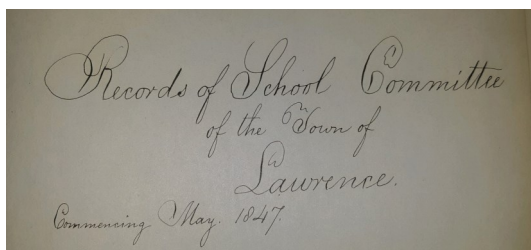 Records of School Committee
of the Town of
Lawrence.
Commencing May. 1847.